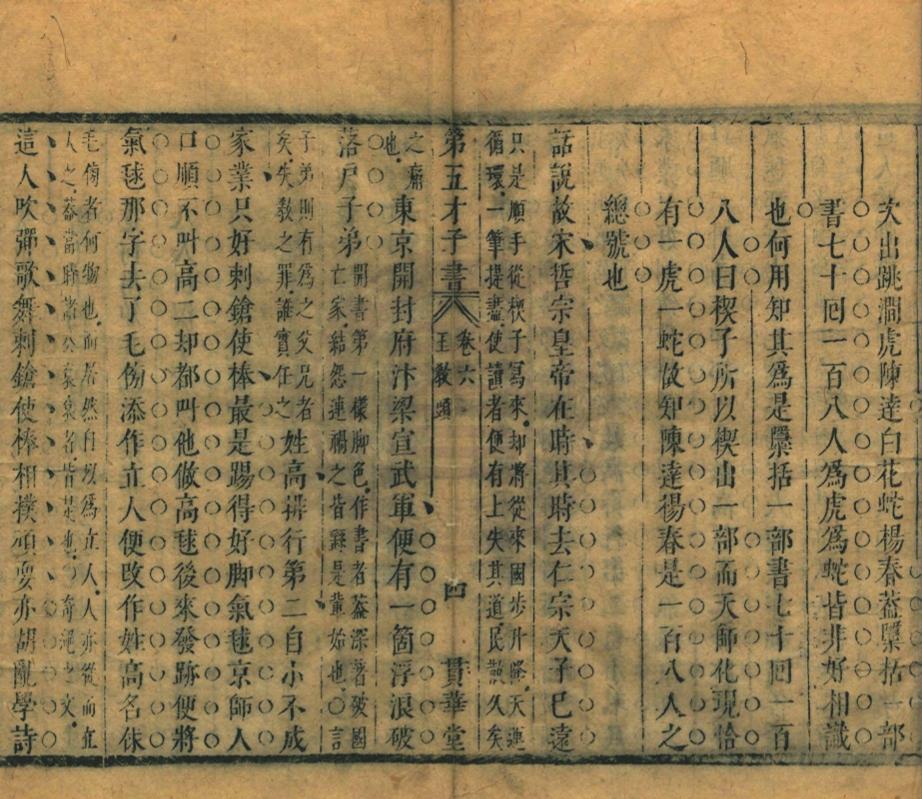 次出跳澗虎陳達白花蛇楊春葢檃括一部
書七十囘一百八人爲虎爲蛇皆非好相識
也何用知其爲是檃括一部書七十囘一百
八人曰楔子所以楔出一部而天師化現恰
有一虎一蛇故知陳達楊春是一百八人之
總號也
話說故宋哲宗皇帝在時其時去仁宗天子已遠
只是順手從楔子寫來却將從來國步升降天運
循環一筆提盡使讀者便有上失其道民散久矣
第五才子書
卷六
王教頭
四
貫華堂
之痛
也
東京開封府汴梁宣武軍便有一箇浮浪破
落戶子弟
開書第一樣脚色作書者葢深著破國
亡家結怨連禍之皆繇是輩始也○言
子弟則有爲之父兄者
矣失教之罪誰實任之
姓高排行第二自小不成
家業只好刺鎗使棒最是踢得好脚氣毬京師人
口順不叫高二却都叫他做高毬後來發跡便將
氣毬那字去了毛傍添作立人便改作姓高名俅
毛傍者何物也而居然自以爲立人人亦從而立
人之葢當時諸公袞袞者皆是也奇絕之文
這人吹彈歌舞刺鎗使棒相撲頑耍亦胡亂學詩